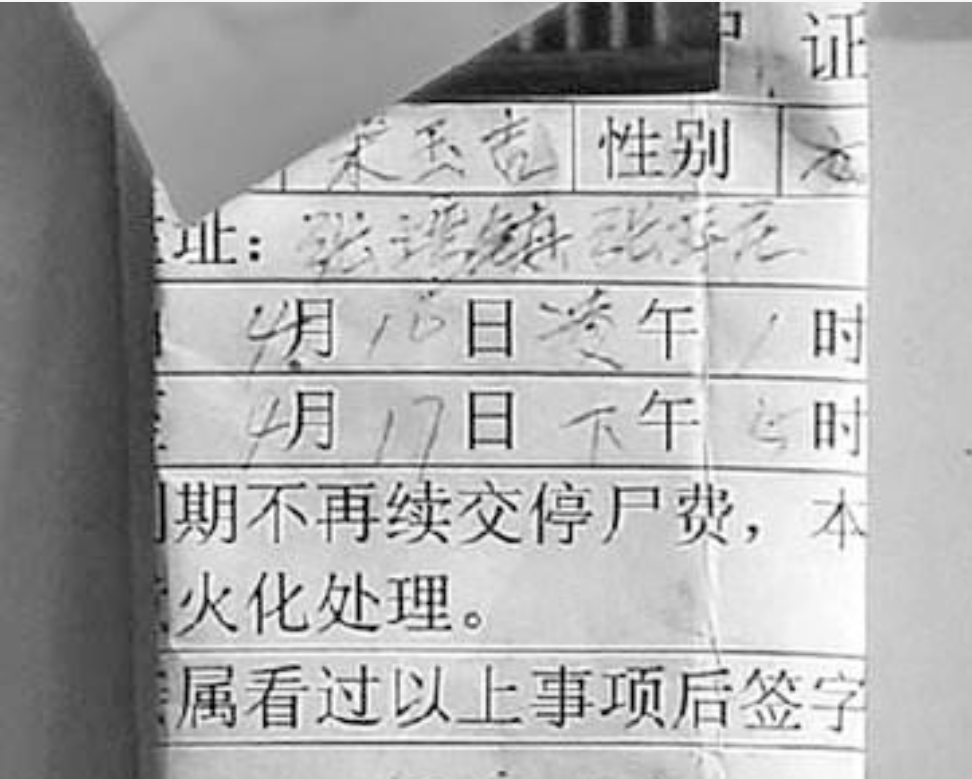 证
宋玉吉 性别 女
址：张瓘镇张军庄
4月16日凌午1时
4月17日下午5时
期不再续交停尸费，本
火化处理。
属看过以上事项后签字